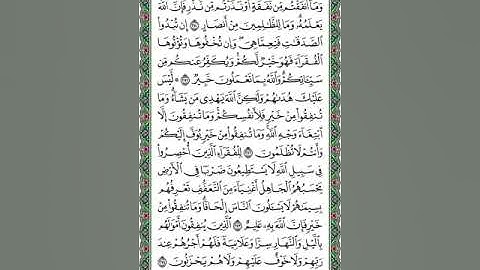 وَمَا أَنفَقْتُم مِّن نَّفَقَةٍ أَوْ نَذَرْتُم مِّن نَّذْرٍ فَإِنَّ ٱللَّهَ
يَعْلَمُهُۥ وَمَا لِلظَّٰلِمِينَ مِنْ أَنصَارٍ ۝ إِن تُبْدُوا۟
ٱلصَّدَقَٰتِ فَنِعِمَّا هِىَ وَإِن تُخْفُوهَا وَتُؤْتُوهَا
ٱلْفُقَرَآءَ فَهُوَ خَيْرٌ لَّكُمْ وَيُكَفِّرُ عَنكُم مِّن
سَيِّـَٔاتِكُمْ وَٱللَّهُ بِمَا تَعْمَلُونَ خَبِيرٌ ۝ ۞ لَّيْسَ
عَلَيْكَ هُدَىٰهُمْ وَلَٰكِنَّ ٱللَّهَ يَهْدِى مَن يَشَآءُ وَمَا
تُنفِقُوا۟ مِنْ خَيْرٍ فَلِأَنفُسِكُمْ وَمَا تُنفِقُونَ إِلَّا
ٱبْتِغَآءَ وَجْهِ ٱللَّهِ وَمَا تُنفِقُوا۟ مِنْ خَيْرٍ يُوَفَّ إِلَيْكُمْ
وَأَنتُمْ لَا تُظْلَمُونَ ۝ لِلْفُقَرَآءِ ٱلَّذِينَ أُحْصِرُوا۟
فِى سَبِيلِ ٱللَّهِ لَا يَسْتَطِيعُونَ ضَرْبًا فِى ٱلْأَرْضِ
يَحْسَبُهُمُ ٱلْجَاهِلُ أَغْنِيَآءَ مِنَ ٱلتَّعَفُّفِ تَعْرِفُهُم
بِسِيمَٰهُمْ لَا يَسْـَٔلُونَ ٱلنَّاسَ إِلْحَافًا وَمَا تُنفِقُوا۟ مِنْ
خَيْرٍ فَإِنَّ ٱللَّهَ بِهِۦ عَلِيمٌ ۝ ٱلَّذِينَ يُنفِقُونَ أَمْوَٰلَهُم
بِٱلَّيْلِ وَٱلنَّهَارِ سِرًّا وَعَلَانِيَةً فَلَهُمْ أَجْرُهُمْ عِندَ
رَبِّهِمْ وَلَا خَوْفٌ عَلَيْهِمْ وَلَا هُمْ يَحْزَنُونَ